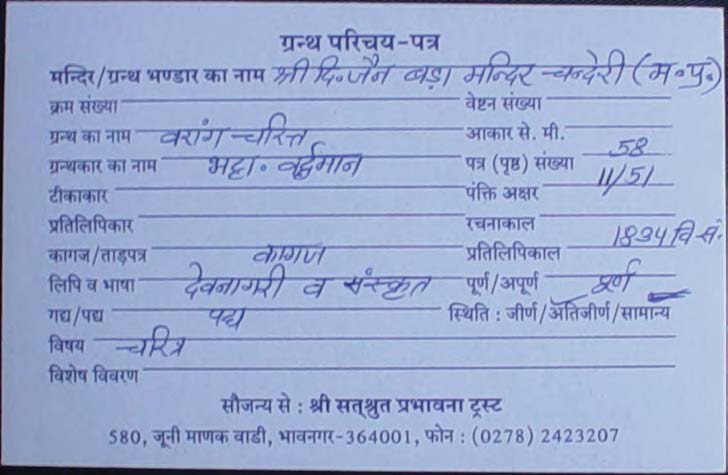 ग्रन्थ परिचय-पत्र
मन्दिर/ग्रन्थ भण्डार का नाम श्री दि॰ जैन बड़ा मन्दिर चन्देरी (म॰प्र॰)
क्रम संख्या वेष्टन संख्या
ग्रन्थ का नाम वरांग चरित्त आकार से. मी.
ग्रन्थकार का नाम भट्टा॰ वर्द्धमान पत्र (पृष्ठ) संख्या 58
टीकाकार पंक्ति अक्षर 11/51
प्रतिलिपिकार रचनाकाल
कागज/ताड़पत्र कागज प्रतिलिपिकाल 1894 वि सं.
लिपि व भाषा देवनागरी व संस्कृत पूर्ण/अपूर्ण पूर्ण
गद्य/पद्य पद्य स्थिति : जीर्ण/अतिजीर्ण/सामान्य
विषय चरित्र
विशेष विवरण
सौजन्य से : श्री सत्श्रुत प्रभावना ट्रस्ट
580, जूनी माणक वाडी, भावनगर-364001, फोन : (0278) 2423207